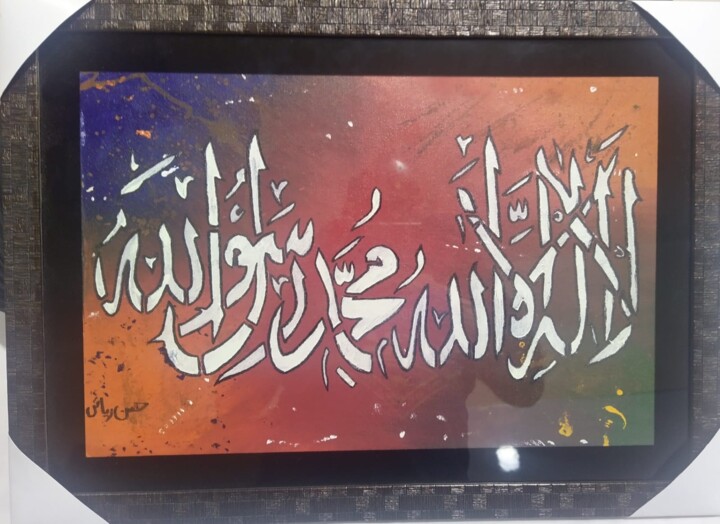 لا إله إلا الله محمد رسول الله
حسن رياض